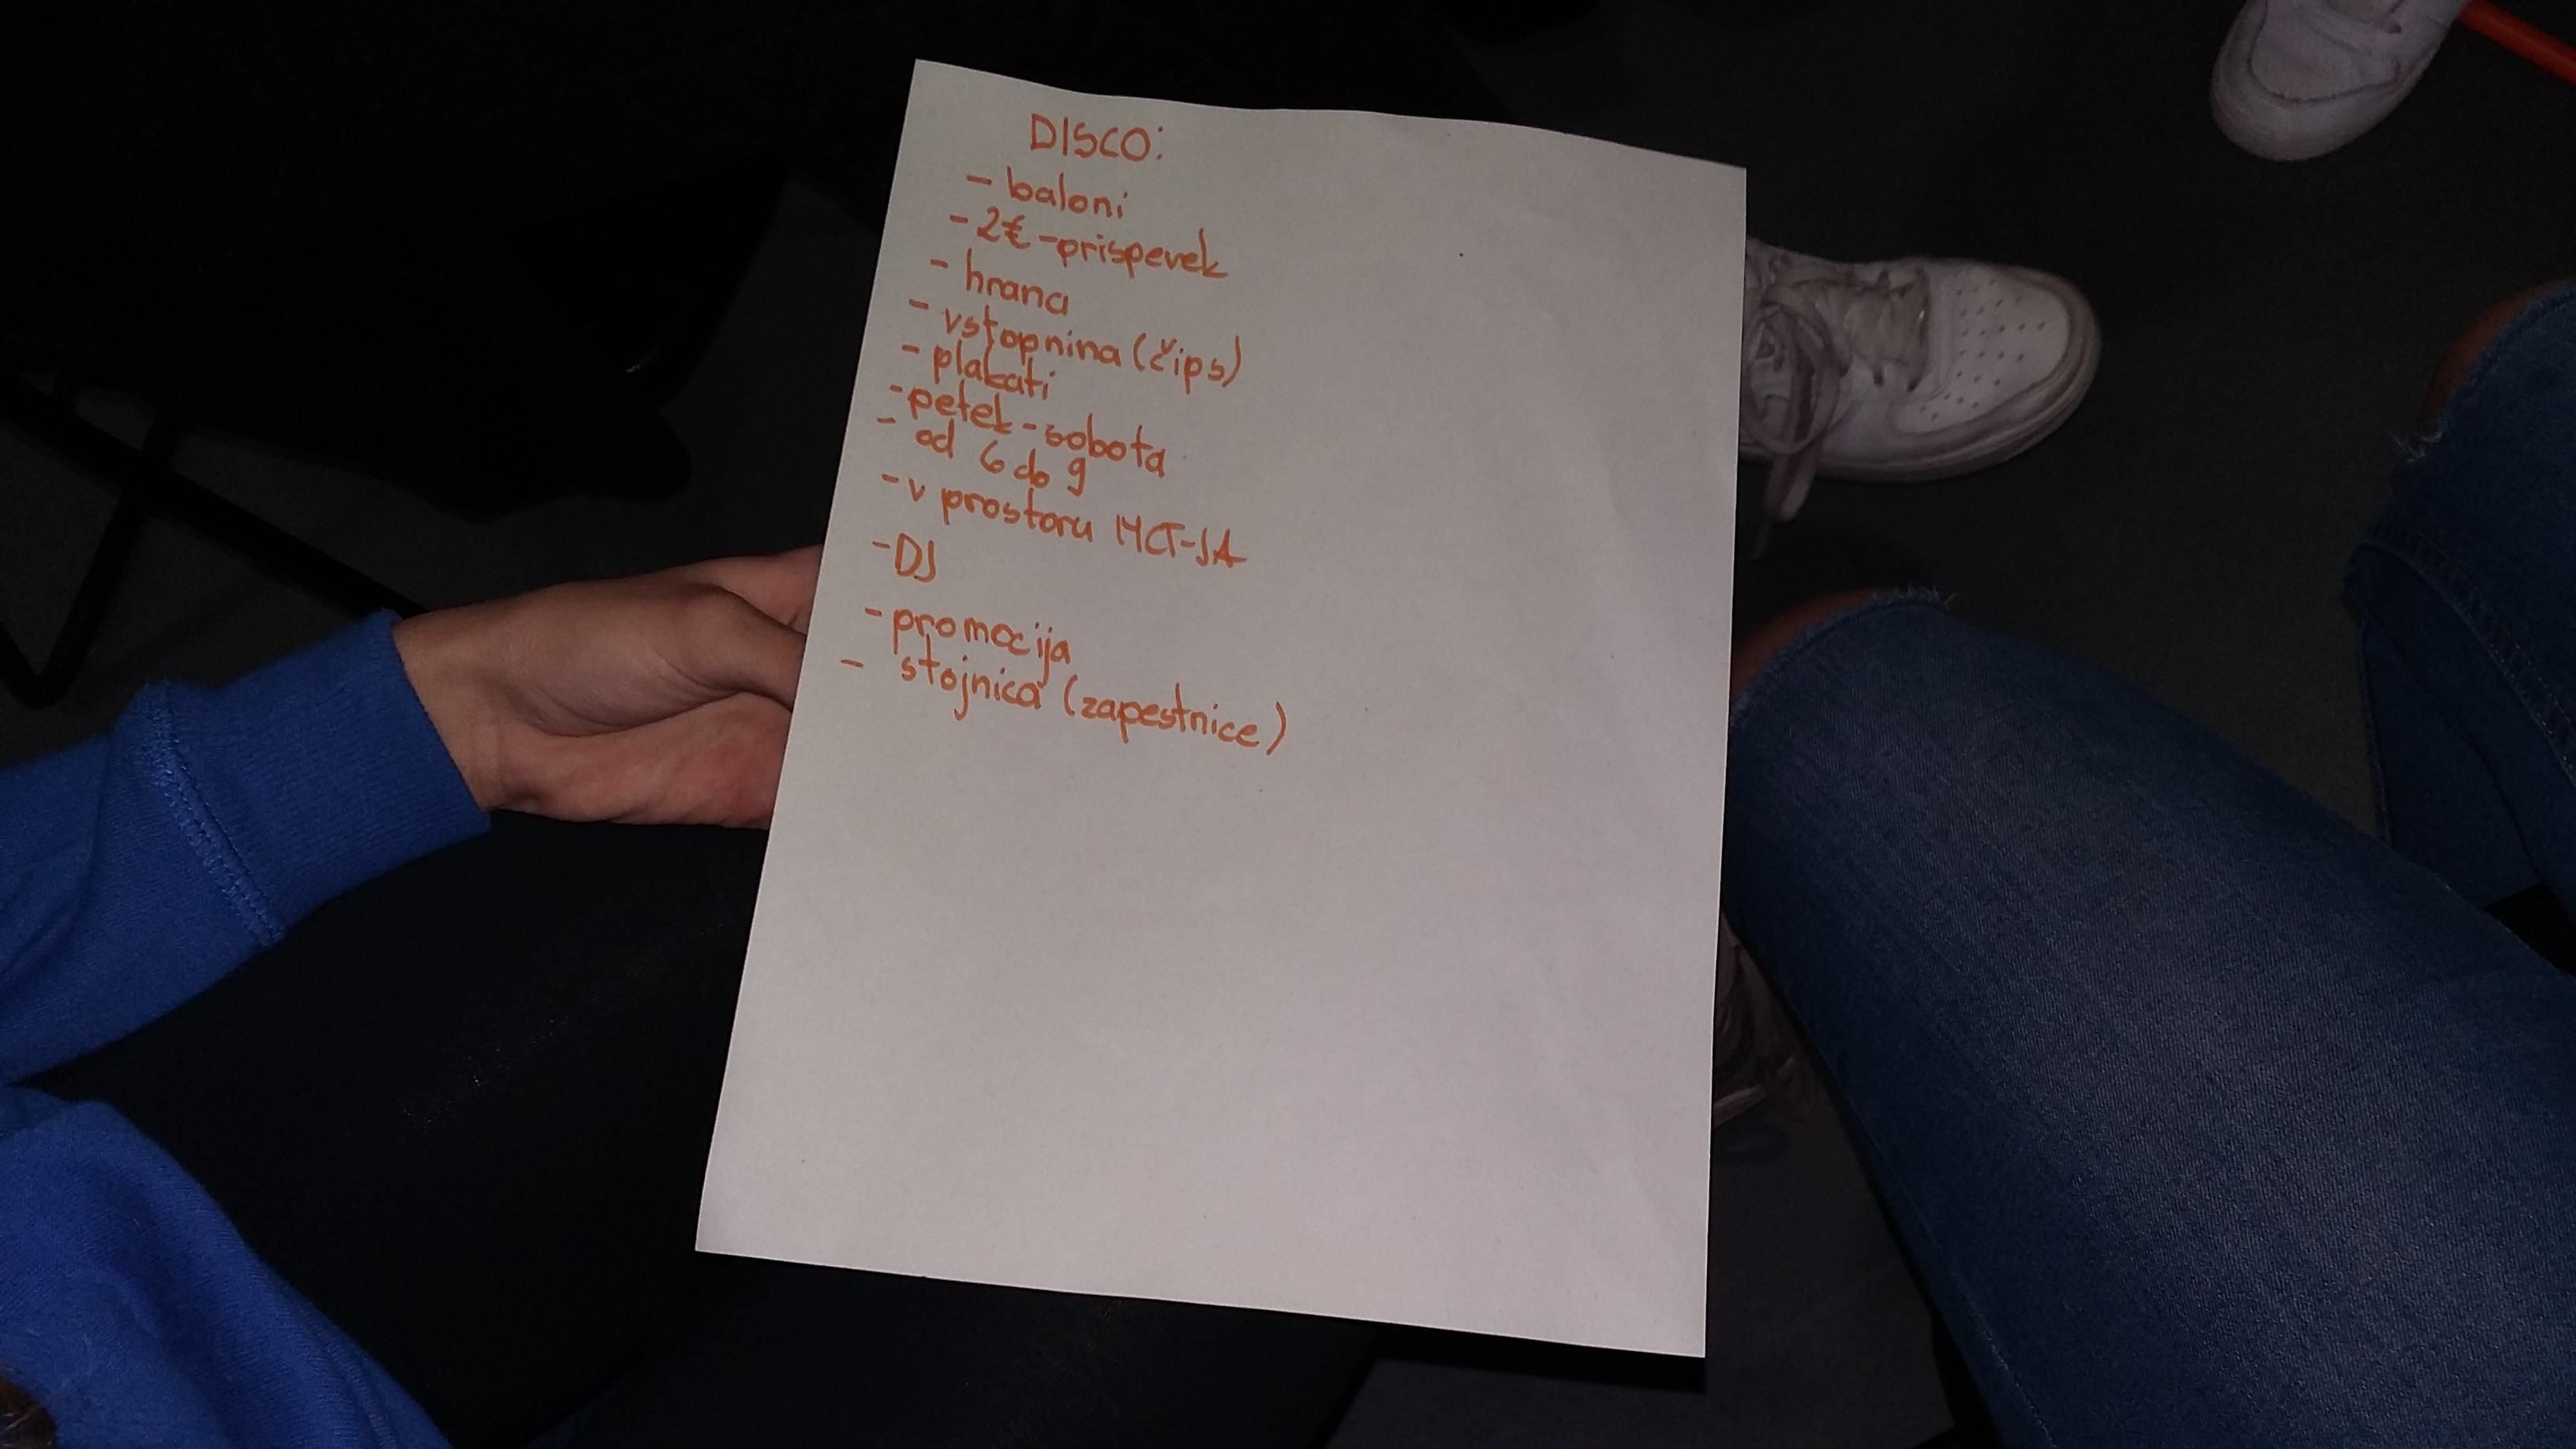 DISCO:
- baloni
- 2€ - prispevek
- hrana
- vstopnina (čips)
- plakati
- petek - sobota
- od 6 do 9
- v prostoru MCT-JA
- DJ
- promocija
- stojnica (zapestnice)